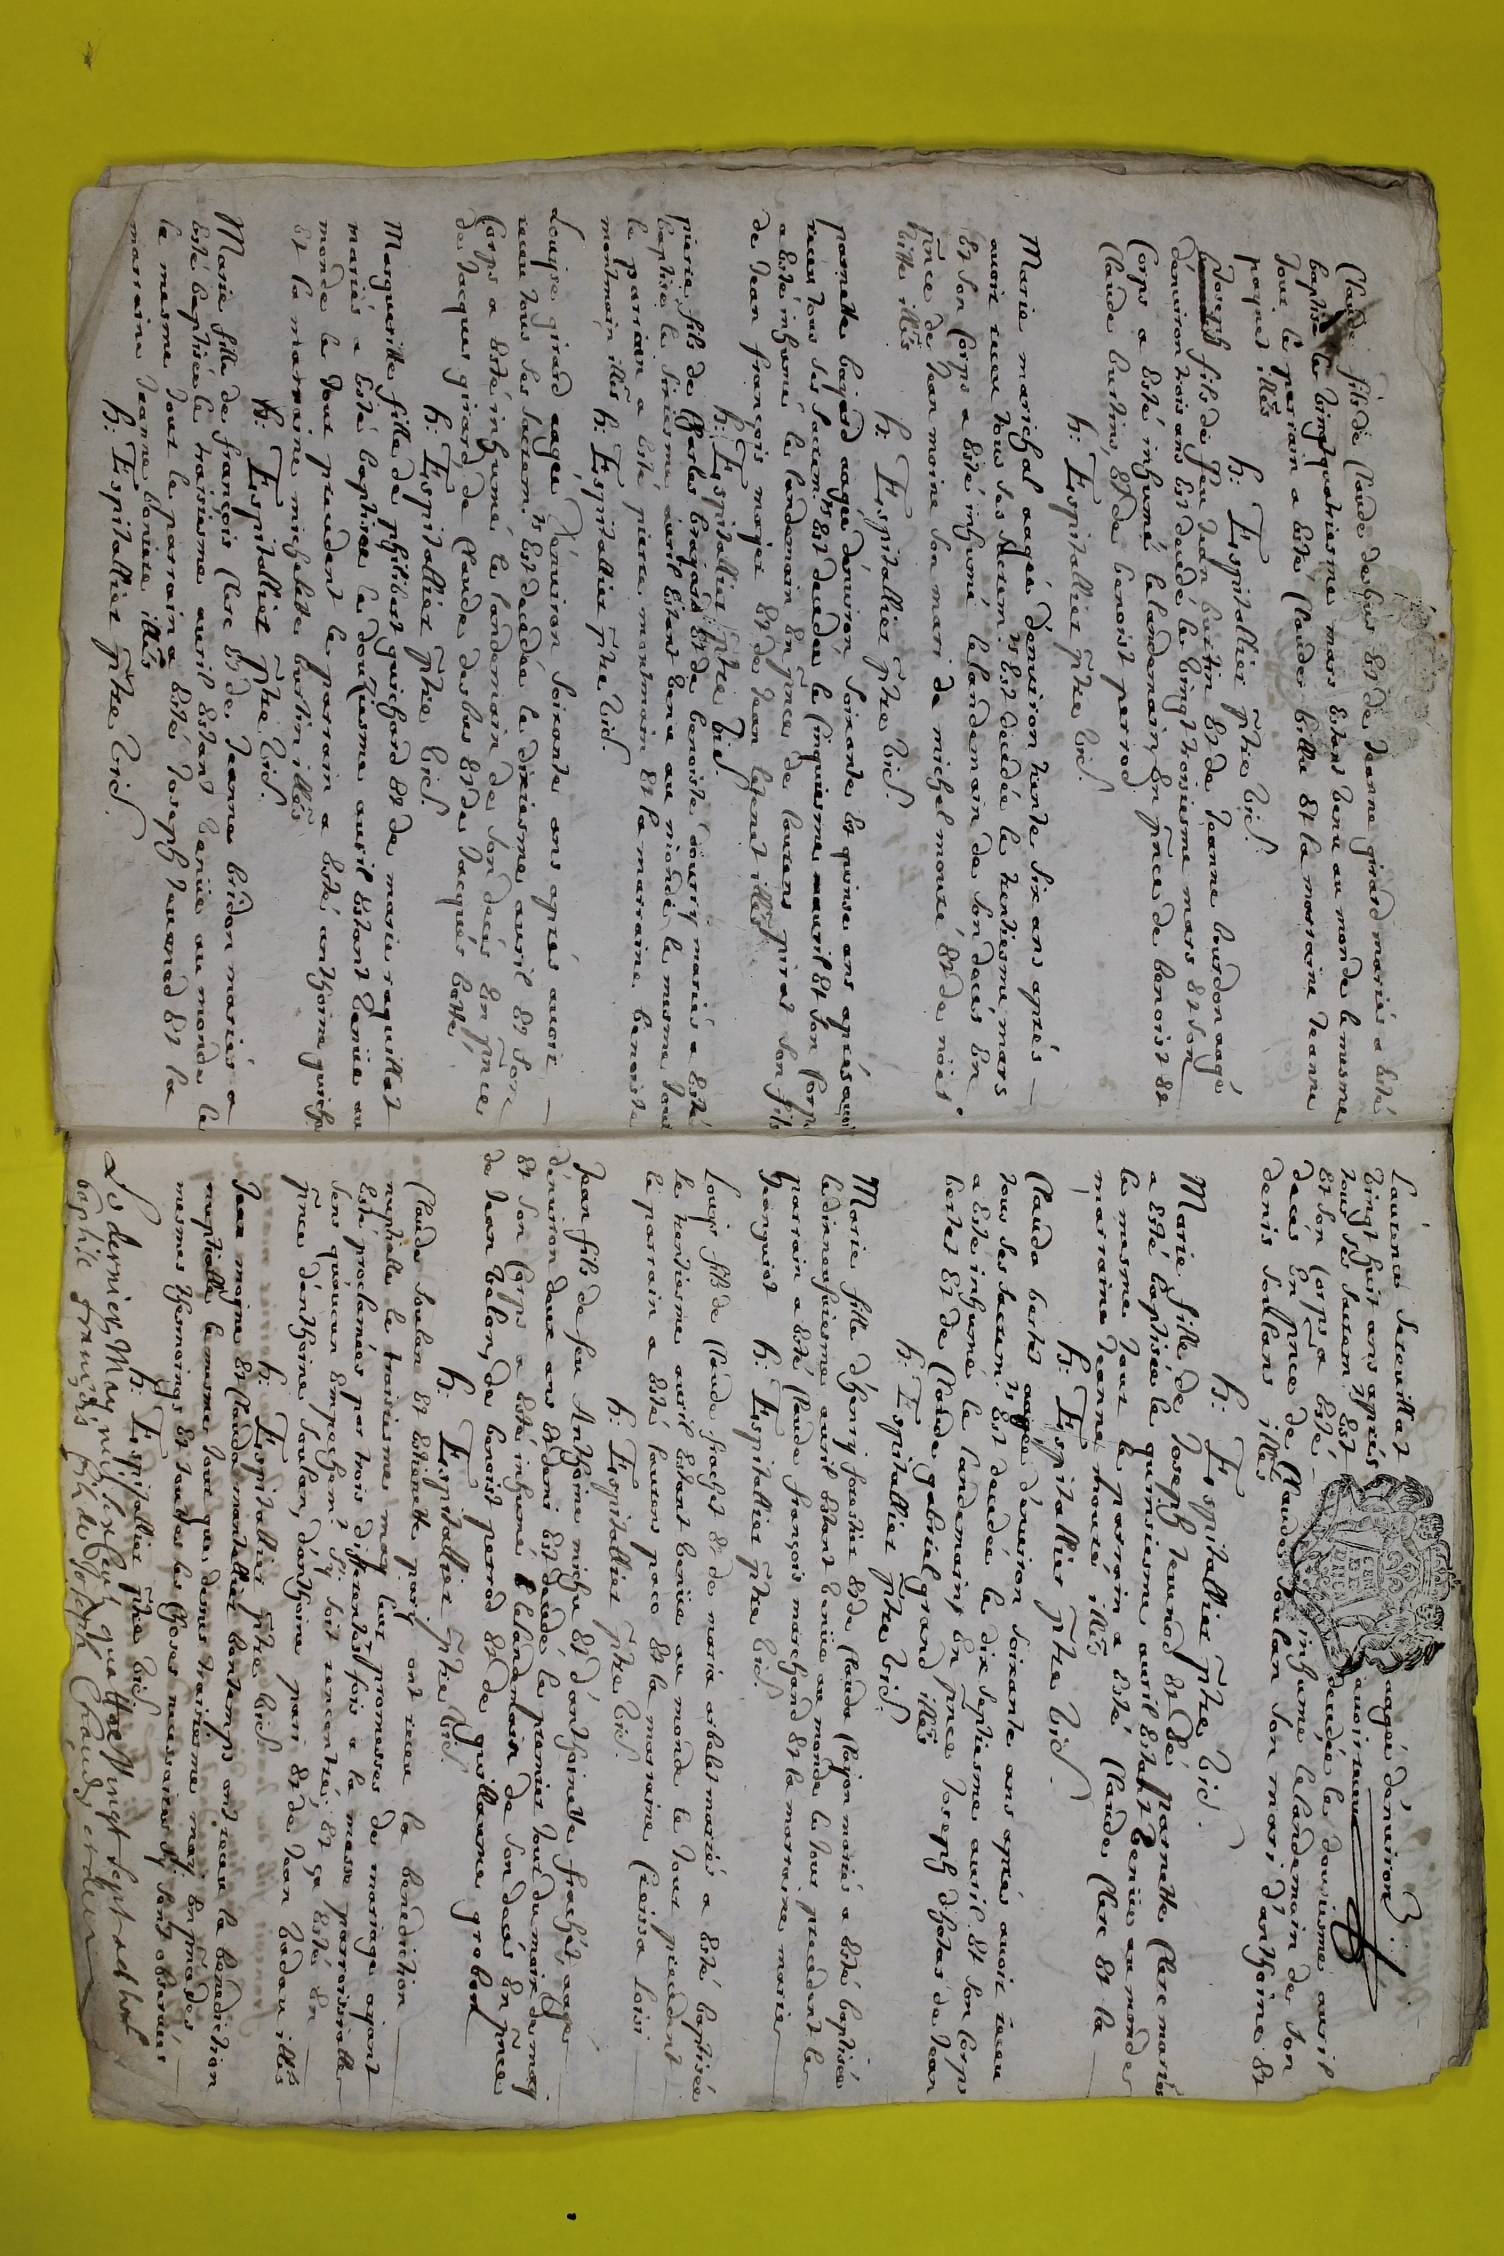 Claude fils de Claude desbus et de Jeanne girard mariés a esté
baptisé le vingtquatriesme mars estant venu au monde le mesme
Jour le parrain a esté Claude billia et la marraine Jeanne
paquet illés
h: Espitallier ptre vic.
Joseph fils de feu Jean burtin et de Jeanne bourdon aagé
d'environ trois ans est decedé le vingt troisiesme mars et son
Corps a esté inhumé le landemain en pnce de benoist et
Claude burtins, et de benoist perrod
h: Espitallier ptre vic.
Marie marichal aagée d'environ trente six ans aprés
avoir receu tous ses sacrem.ts est decedée le trentiesme mars
et son Corps a esté inhumé le landemain de son decés en
pnce de Jean moine son mari de michel mouré et de
illés
h: Espitallier ptre vic.
pernette bajard aagée d'environ soixante et quinse ans aprés avoir
receu tous ses sacrem.ts est decedée le Cinquiesme auril et son Corps
a esté inhumé le landemain en pnce de laurens pirat son fils
de Jean françois majet et de Jean illés
h: Espitallier ptre vic.
pierre fils de Charles brajard et de benoiste mariés a esté
baptisé le siziesme auril estant venu au monde le mesme Jour
le parrian a esté pierre montmain et la marraine benoiste
montmain illés h: Espitallier ptre vic.
Louyse girard aagée d'environ soixante ans aprés avoir
receu tous ses sacrem.ts est decedée le diziesme auril et son
Corps a esté inhumé le landemain de son decés en pnce
de Jacques girard, de Claude desbus et de Jacques
h: Espitallier ptre vic.
Marguerite fille de philibert guichard et de marie raquillet
mariés a esté baptisée le douziesme auril estant venüe au
monde le Jour precedent le parrain a esté anthoine guichard
et la marraine michelette burtin illés
h: Espitallier ptre vic.
Marie fille de françois Clerc et de Jeanne bridon mariés a
esté baptisée le traisiesme auril estant venüe au monde le
le mesme Jour le parrain a esté Joseph teuenod et la
marraine Jeanne baniere illés
h: Espitallier ptre vic.
Laurence aagée d'environ
vingt huit ans aprés avoir receu
tous ses sacrem.ts est decedée le douziesme auril
et son Corps a esté inhumé le landemain de son
decés en pnce de Claude soulan son mari d'anthoine et
denis soullans illés
h: Espitallier ptre vic.
Marie fille de Joseph teuenod et de pernette Clerc mariés
a esté baptisée le quinsiesme auril estant venüe au monde
le mesme Jour le parrain a esté Claude Clerc et la
marraine Jeanne mouré illés
h: Espitallier ptre vic.
Clauda bertet aagée d'environ soixante ans aprés avoir receu
tous ses sacrem.ts est decedée le dix septiesme auril et son Corps
a esté inhumé le landemain en pnce Joseph de Jean
bertet et de Claude gabriel grand illés
h: Espitallier ptre vic.
Marie fille d'henry forestier et de Clauda mariés a esté baptisée
le dixneufuiesme auril estant venüe au monde le Jour precedent le
parrain a esté Claude françois marchand et la marraine marie
Janquiet h: Espitallier ptre vic.
Louyse fille de Claude frachet et de maria mariés a esté baptisée
le trentiesme auril estant venüe au monde le Jour precedent
le parrain a esté laurens paco et la marraine
h: Espitallier ptre vic.
Jean fils de feu Anthoine michu et d'anthoinette frachet aagé
d'environ deux ans et demi est decedé le premier Jour du mois de may
et son Corps a esté inhumé le landemain de son decés en pnce
de Jean balon, de benoist perrod et de guillaume grobon
h: Espitallier ptre vic.
Claude soulan et estienette pari ont receu la benediction
nuptialle le troisiesme may leur promesses de mariage ayant
esté proclamées par trois differentes fois a la messe parroissialle
sens qu'aucun empechem.t s'y soit rencontré, et ça esté en
pnce d'anthoine soulan, d'anthoine pari et de Jean badau illés
h: Espitallier ptre vic.
Jean moyne et Clauda montellier ont receu la benediction
nuptialle le mesme Jour que dessus traisiesme may en pnce des
mesmes thesmoings et toutes les choses necessaires s'y sont obseruées
h: Espitallier ptre vic.
Ls dernier May mil six cent quattre vingt sept ad
baptisé françois fils de Joseph